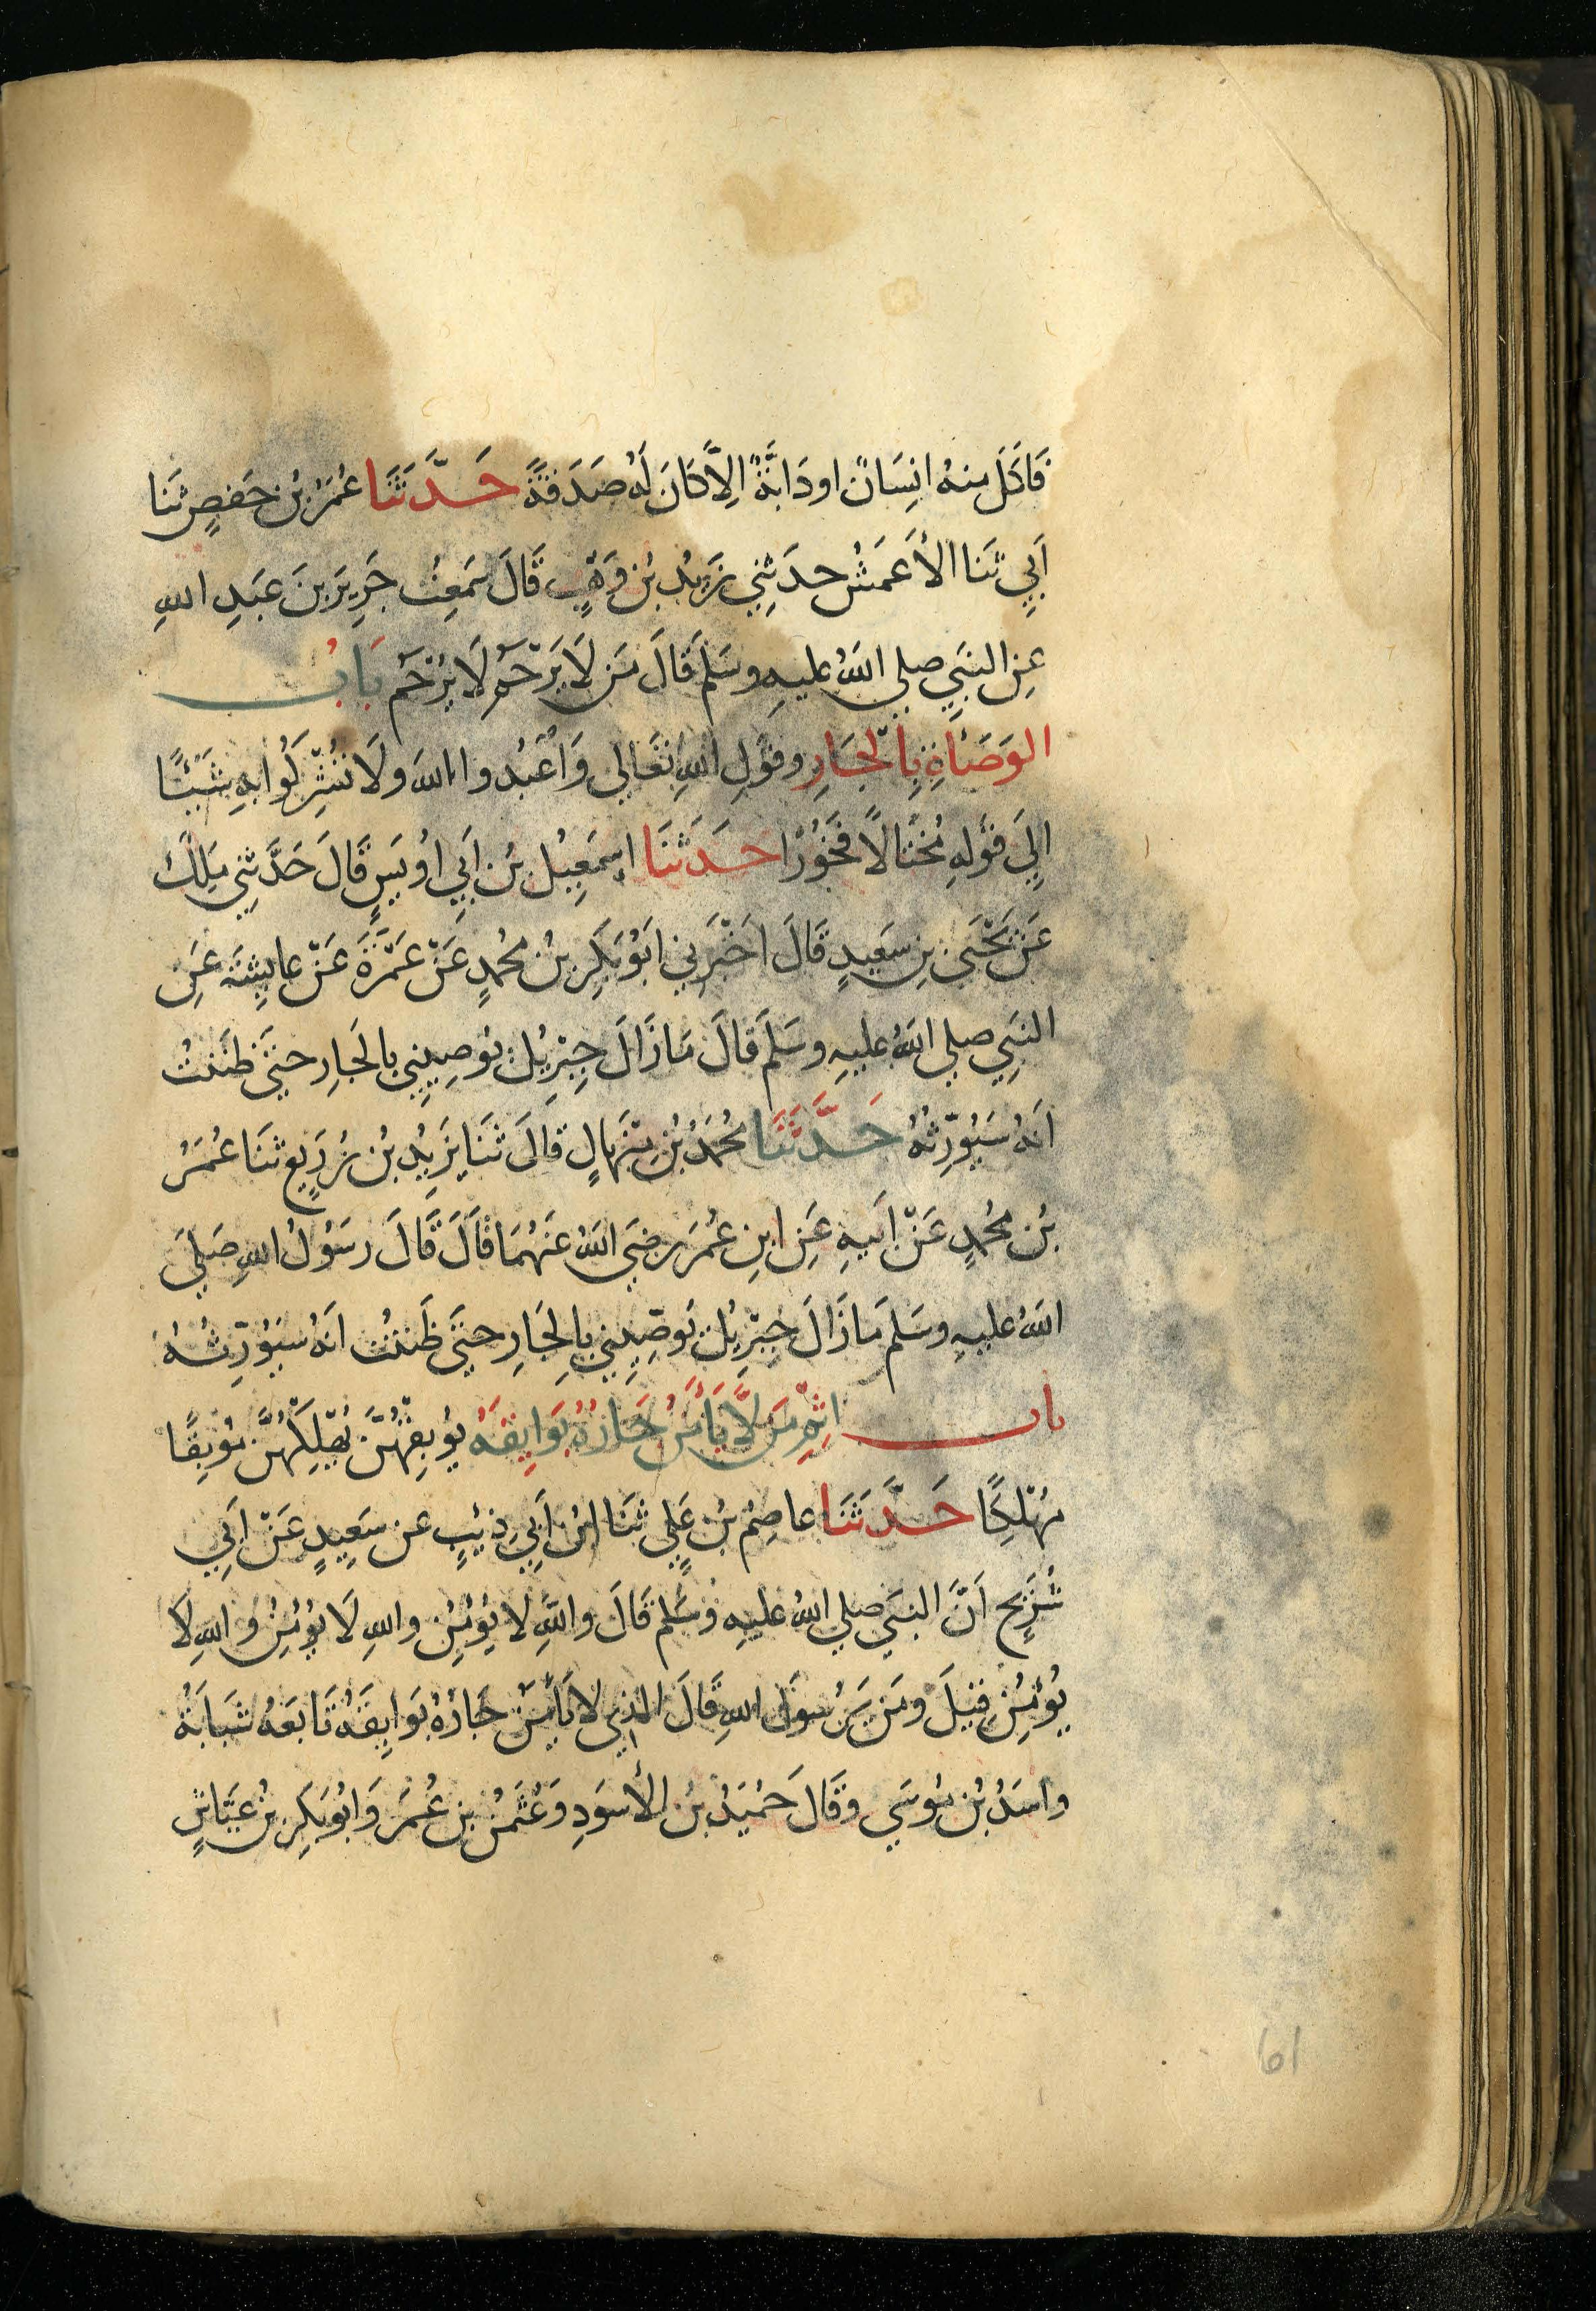 فَاكَلَ مِنهُ انِسَانٌ او دَابَّةٌ الِاَّ كَانَ لَهُ صَدَقَةً حَدَّثَنَا عُمَرُ بْنُ حَفصٍ ثَنَا
اَبِي ثَنَا الأَعمَشُ حدَثِنِي زَيدُ بْنُ وَهْبٍ قَالَ سَمعتُ جَرِيرَ بنَ عَبدِ اللهِ
عِنِ النبِيِ صلي اللهُ عليهِ وسَلَم قَالَ مَن لاَ يَرْحَم لَا يُرْحَم بَابُ
الوَصَاةِ بِالجَارِ وقَولِ اللهِ تعَالي وَاعْبُدوا اللهَ ولَا تُشْرِكُوا بِهِ شَيئًا
اِلِيَ قَولِهِ مُختَالاً فَخُورًا حَدَثَنَا اِسمَعِيلُ بْنُ اَبِي اوُيسٍ قَالَ حَدَّثَنِي مَلِكٌ
عَنْ يَحْيَي بنِ سَعِيدٍ قَالَ اَخْبَرَنِي ابَوُبَكرِ بْنُ محُمدٍ عَنْ عَمْرَةَ عَنْ عايِشَةَ عَنِ
النبِيِ صلي اللهُ عليهِ وسَلَم قَالَ مَا زَالَ جِبْرِيلُ يُوصِينِي بالجَارِ حتَيَ ظَنَنتُ
انَهُ سَيُوَرِّثُهُ حَدَّثَنَا محُمَدُ بْنُ مِنْهَالٍ قَالَ ثَنَا يَزِيدُ بْنُ زُرَيعٍ ثنَا عُمَرُ
بْنُ محُمدٍ عَنْ اَبيهِ عَنِ ابنِ عُمَرَ رضَيَ اللهُ عَنهُمَا قَالَ قَالَ رسَوُلُ اللهِ صَليَ
اللهُ عليهِ وسَلم مَا زَالَ جِبْرِيلُ يُوصِينِي بِالجَارِ حتَيَ ظَننتُ انَهُ سيَوُرِّثُهُ
باب اثِمِ مَن لاَّ يَأمَنُ جَارُهُ بَوَايِقَهُ يُوبِقْهُنَّ يُهْلِكْهُنَّ مَوبِقًا
مَهْلَكًا حَدَّثَنَا عاصِمُ بْنُ عَلِيٍ ثنَا ابْنُ اَبِي ذِيْبٍ عن سَعِيدٍ عَنْ اَبِي
شُرَيحٍ اَنَّ النبَيَ صلي اللهُ عليهِ وَسَلم قَالَ واللهِ لا يُؤمِنُ واللهِ لَا يُؤمِنُ واللهِ لا
يُؤمِنُ قِيلَ ومَن يَرسوَل اللهِ قَالَ الذِي لا يَأمَنُ جَارُهُ بَوَايِقَهُ تَابَعَهُ شَبابَةُ
واسَدُ بْنُ مُوسَي وقَالَ حُمَيدُ بْنُ الأسوَدِ وَعُثمَنُ بن عُمَرَ وَابُوبَكرِ بْنُ عَيَّاشٍ
61